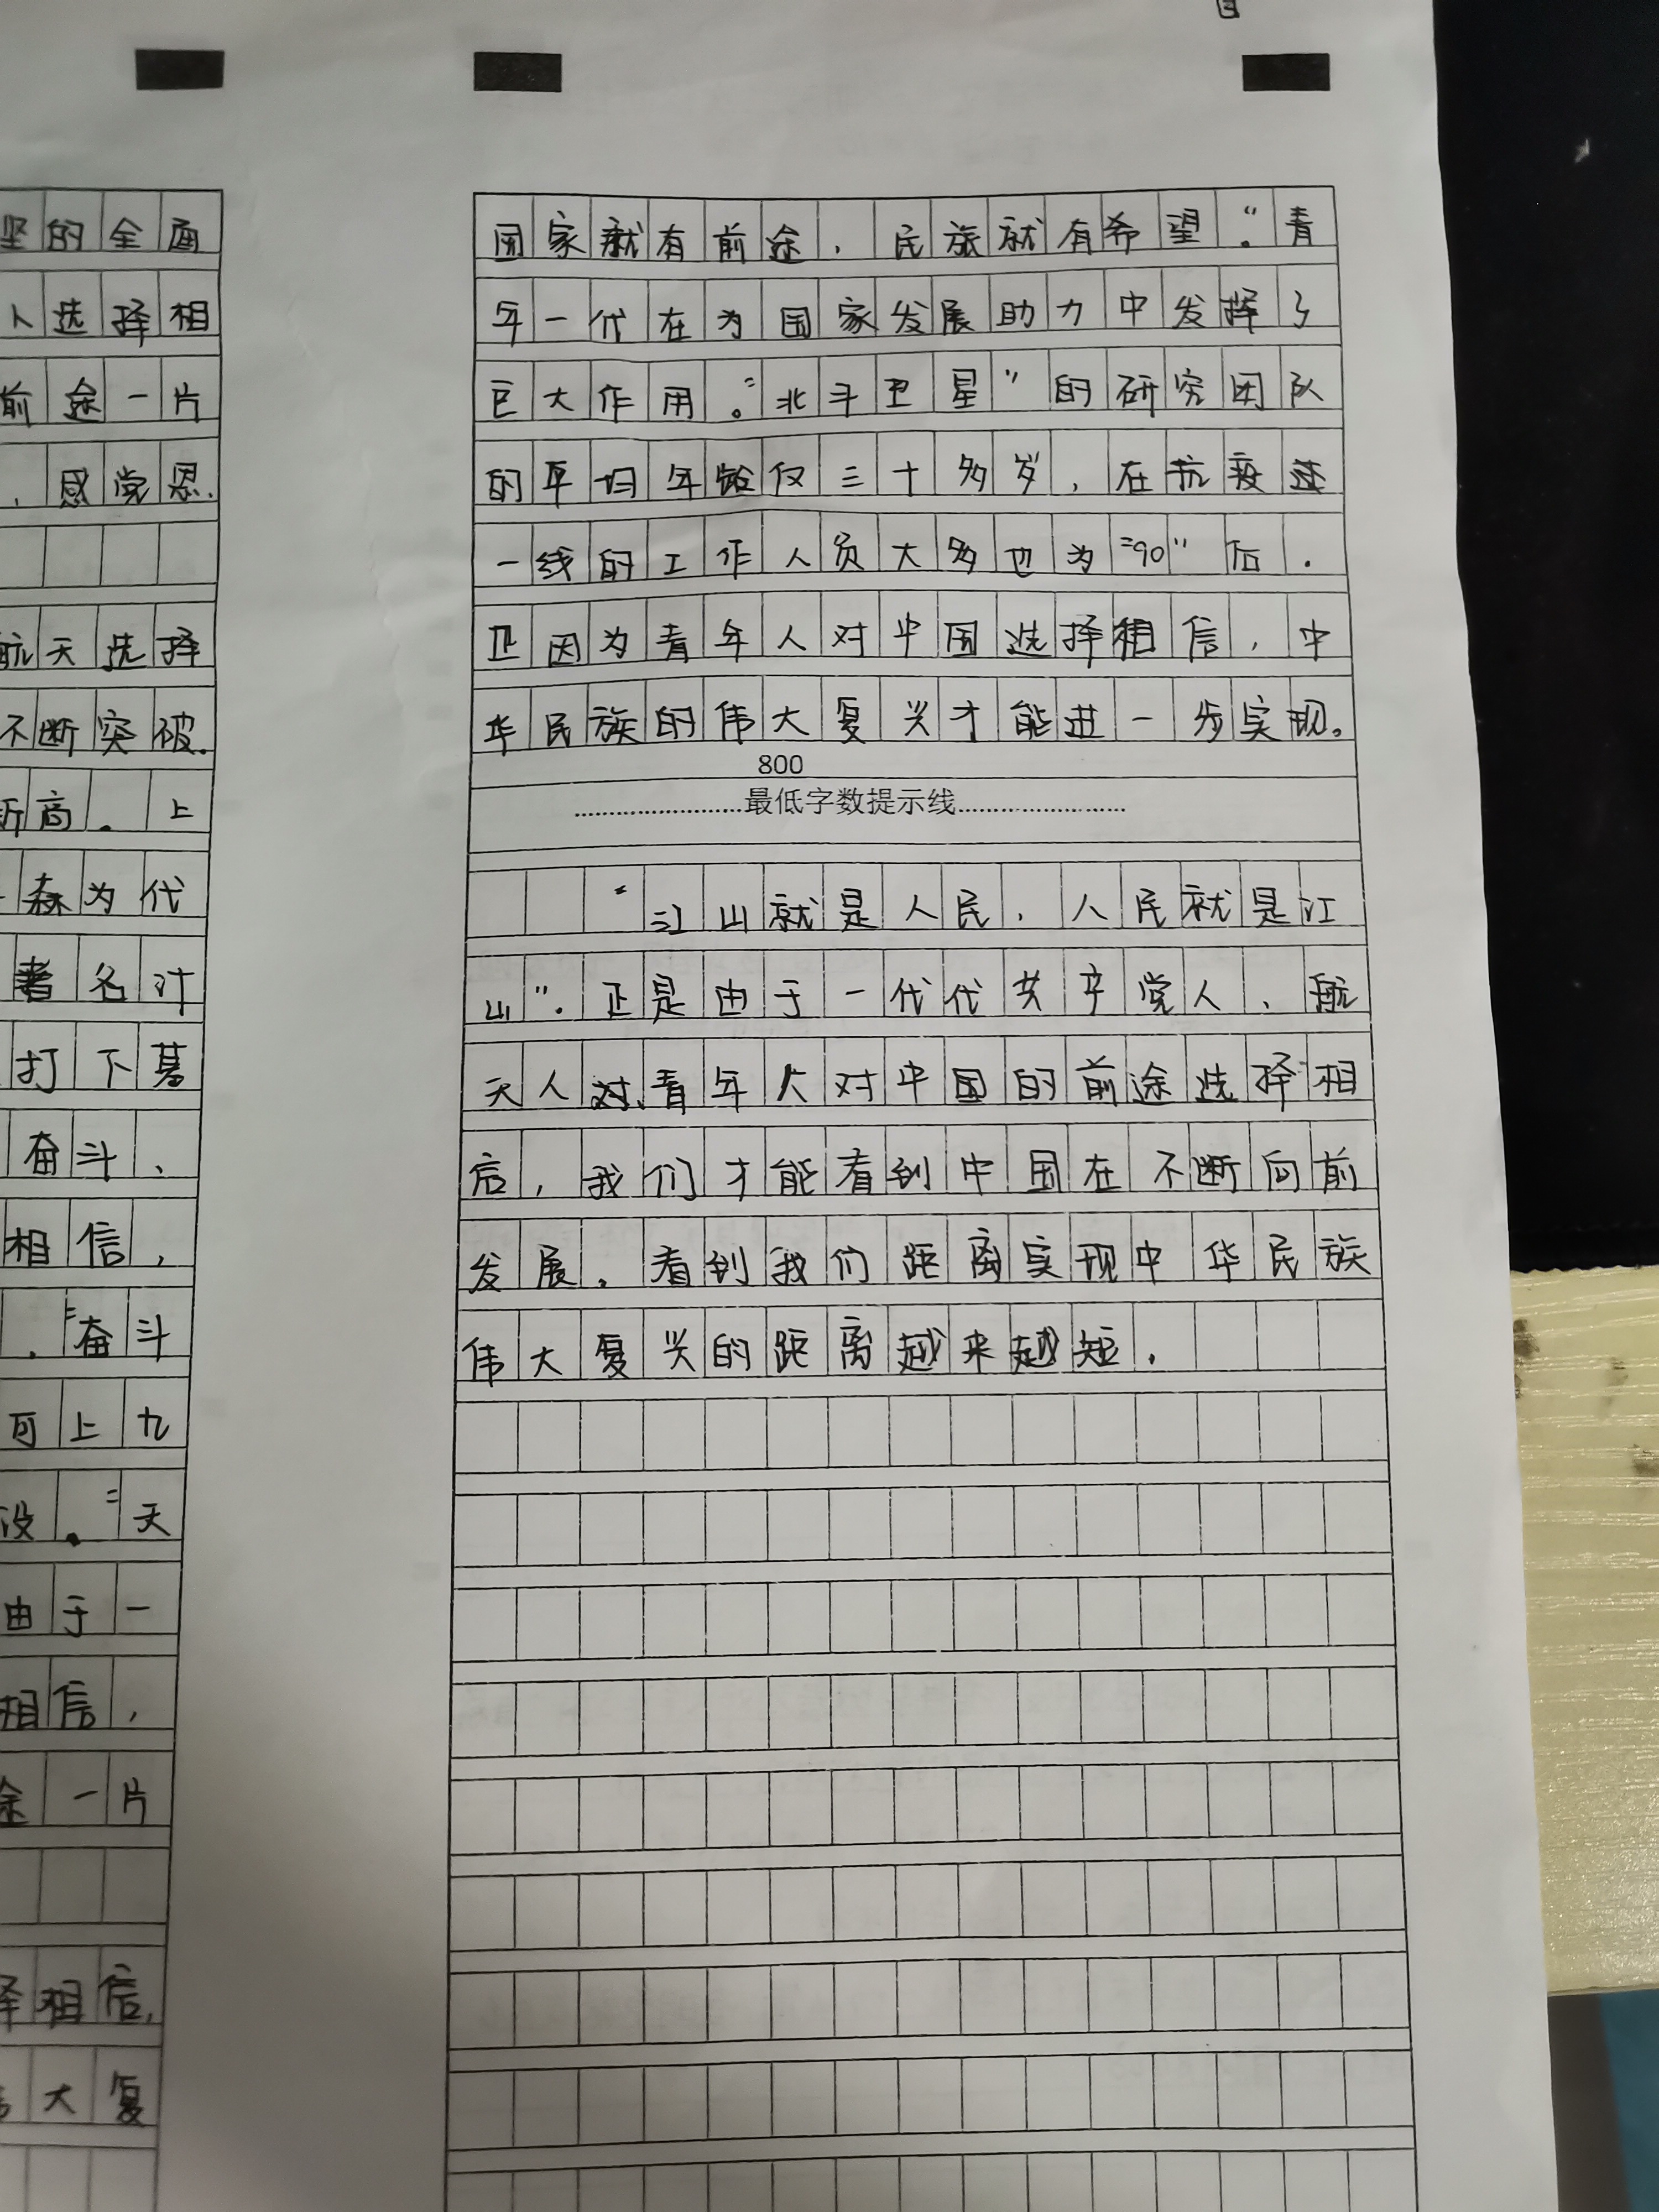 坚的全面
人选择相
前途一片
，感党恩.
航天选择
不断突破.
新高.上
森为代
著名计
打下基
奋斗、
相信，
."奋斗
可上九
没."天
由于一
相信，
途一片
择相信,
大复
国家就有前途，民族就有希望."青
年一代在为国家发展助力中发择了
巨大作用。"北斗卫星"的研究团队
的平均年龄仅三十多岁，在抗疫
一线的工作人员大多也为"90"后.
正因为青年人对中国选择相信，中
华民族的伟大复兴才能进一步实现。
800
最低字数提示线
"江山就是人民，人民就是江
山".正是由于一代代共产党人、航
天人对、青年人对中国的前途选择相
信，我们才能看到中国在不断向前
发展，看到我们距离实现中华民族
伟大复兴的距离越来越短.